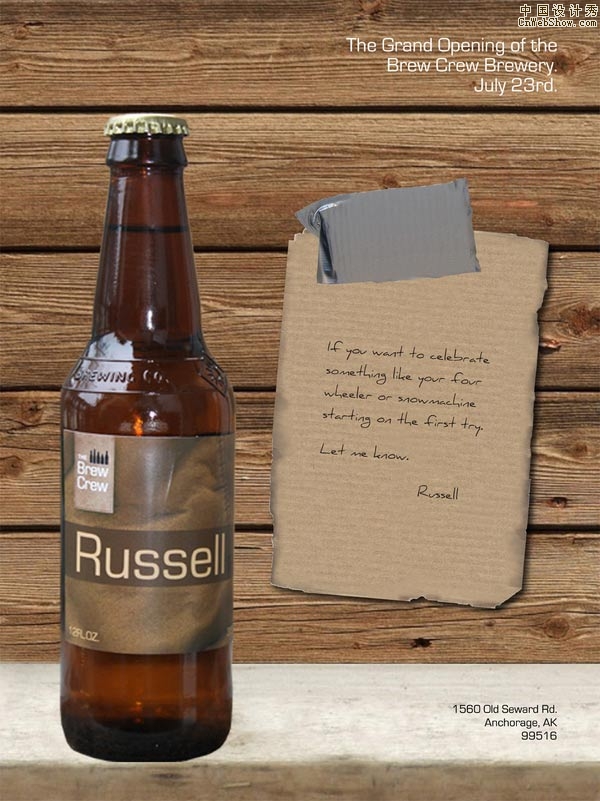 中国设计秀
CnWebShow.com
The Grand Opening of the
Brew Crew Brewery.
July 23rd.
BREWING CO.
If you want to celebrate
something like your four
wheeler or snowmachine
starting on the first try.
Let me know.
Russell
THE
Brew
Crew
Russell
12FL.OZ.
1560 Old Seward Rd.
Anchorage, AK
99516